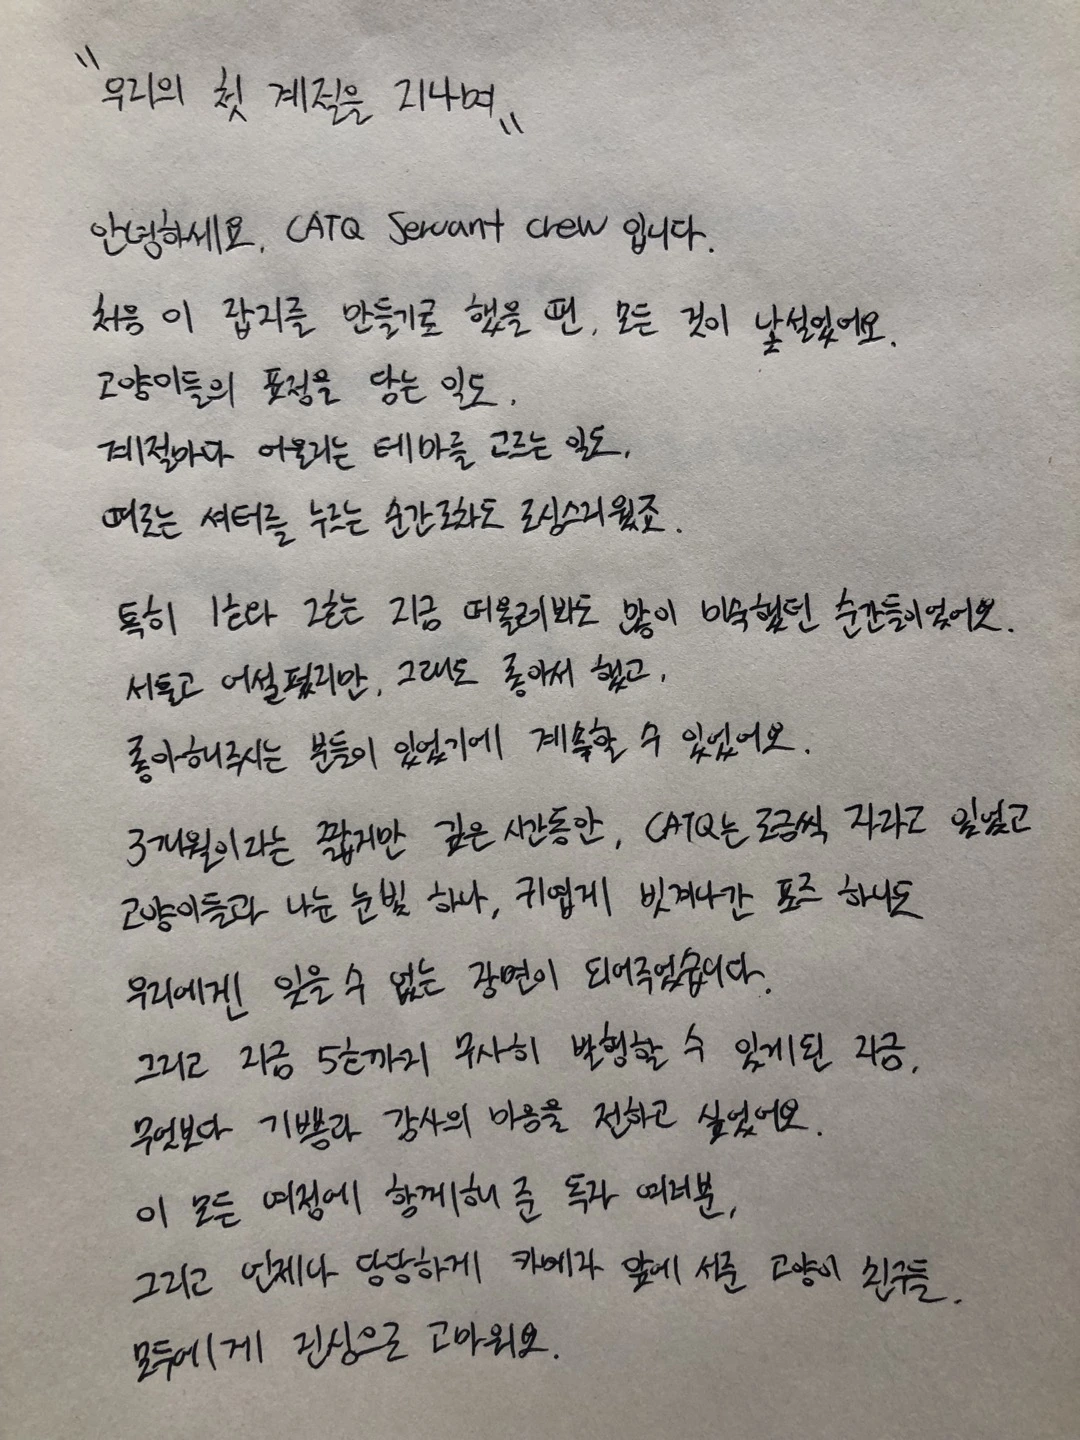 "우리의 첫 계절을 지나며"
안녕하세요, CATQ Servant crew 입니다.
처음 이 잡지를 만들기로 했을 땐, 모든 것이 낯설었어요.
고양이들의 표정을 담는 일도,
계절마다 어울리는 테마를 고르는 일도,
때로는 셔터를 누르는 순간조차도 조심스러웠죠.
특히 1호와 2호는 지금 떠올려봐도 많이 미숙했던 순간들이었어요.
서툴고 어설펐지만, 그래도 좋아서 했고,
좋아해주시는 분들이 있었기에 계속할 수 있었어요.
3개월이라는 짧지만 깊은 시간동안, CATQ는 조금씩 자라고 있었고
고양이들과 나눈 눈빛 하나, 귀엽게 빗겨나간 포즈 하나도
우리에겐 잊을 수 없는 장면이 되어주었습니다.
그리고 지금 5호까지 무사히 발행할 수 있게된 지금,
무엇보다 기쁨과 감사의 마음을 전하고 싶었어요.
이 모든 여정에 함께해 준 독자 여러분,
그리고 언제나 당당하게 카메라 앞에 서준 고양이 친구들.
모두에게 진심으로 고마워요.